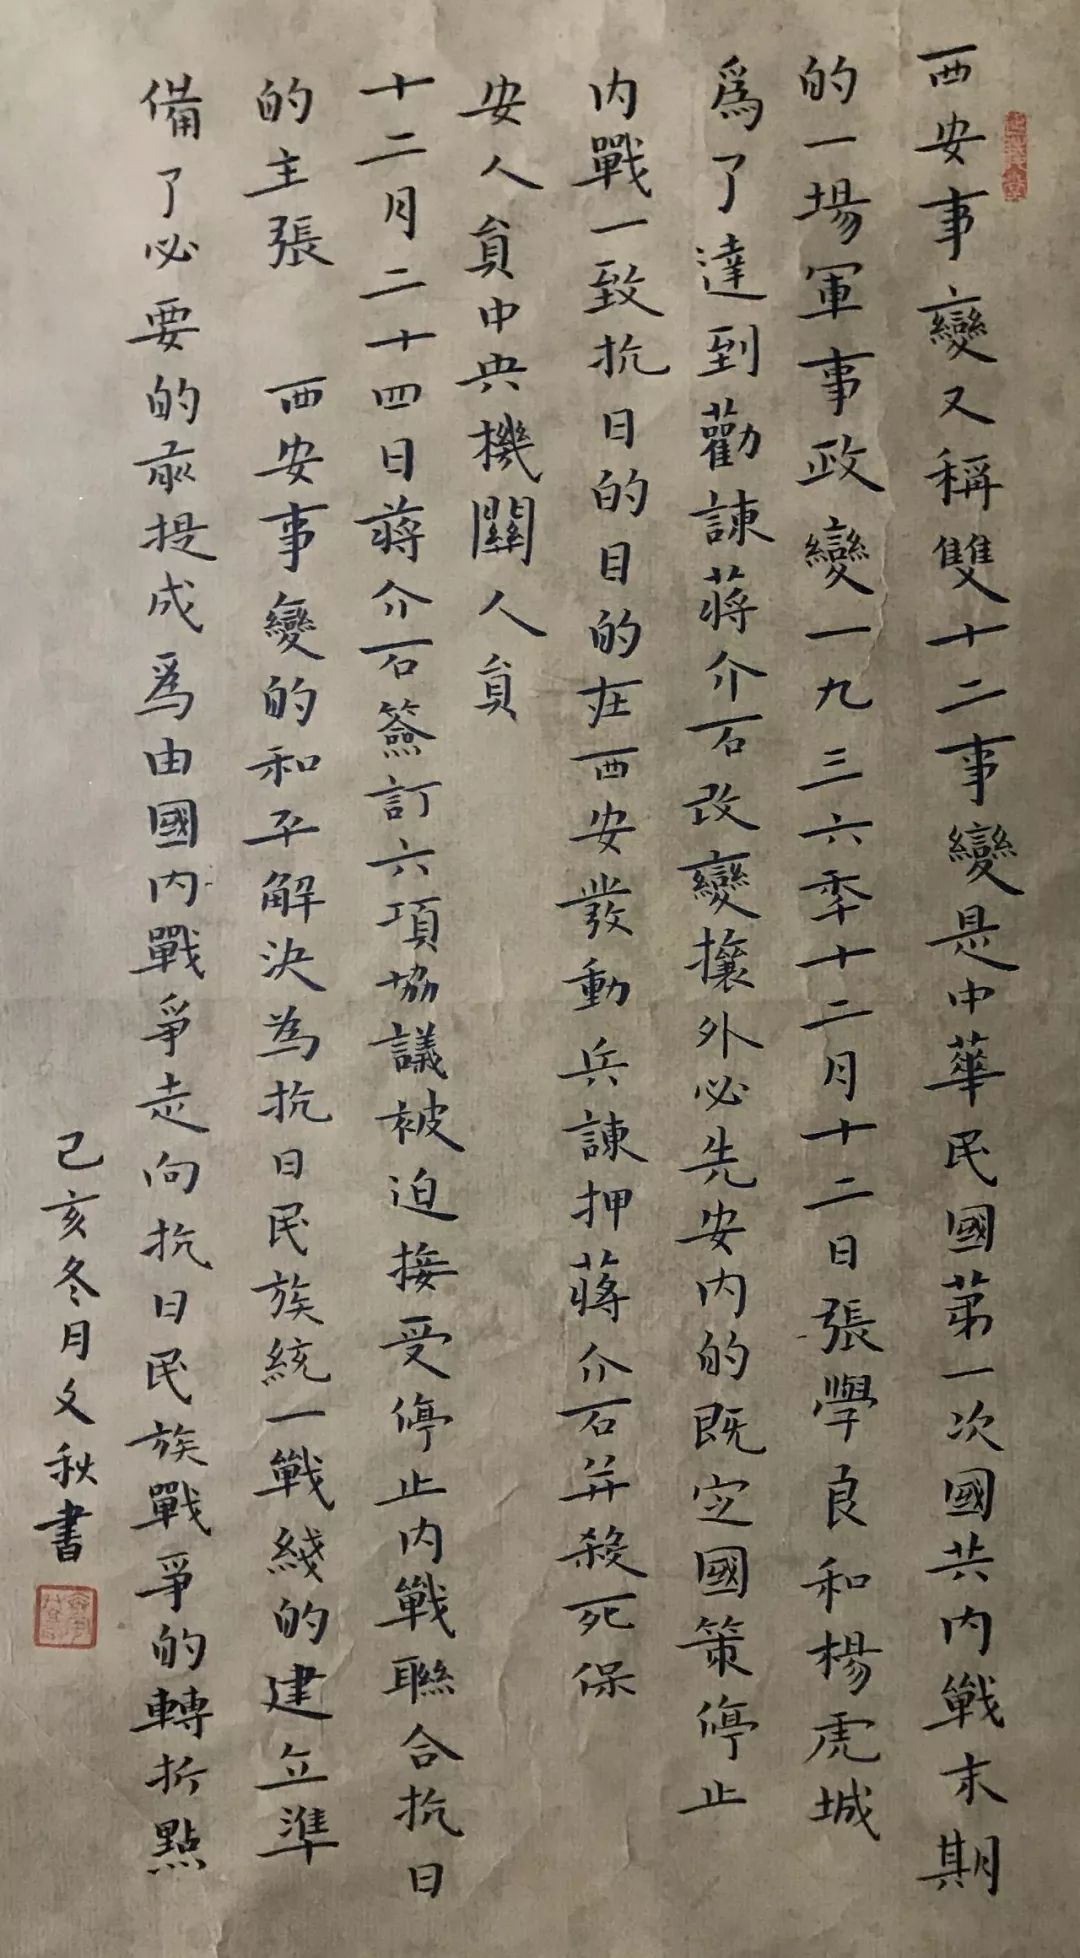 西安事變又稱雙十二事變是中華民國第一次國共内戰末期
的一場軍事政變一九三六秊十二月十二日張學良和楊虎城
爲了達到勸諫蔣介石改變攘外必先安内的既定國策停止
内戰一致抗日的目的在西安發動兵諫押蔣介石并殺死保
安人員中央機關人員
十二月二十四日蔣介石簽訂六項協議被迫接受停止内戰聯合抗日
的主張 西安事變的和平解決為抗日民族統一戰綫的建立準
備了必要的前提成爲由國内戰爭走向抗日民族戰爭的轉折點
己亥冬月文秋書